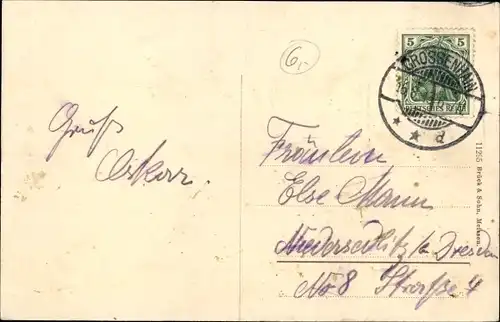 6,-
5 5
GROSSENHAIN
DEUTSCHES REICH
* * d
Gruß
Oskar.
Fräulein
Else Mann
Niedersedlitz b/ Dresden
No 8 Straße 4
11255 Brück & Sohn, Meissen.